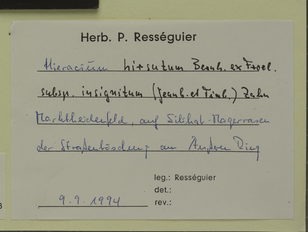 Herb. P. Rességuier
Hieracium hirsutum Bernh. ex Froel.
subsp. insignitum (Jeanb. et Timb.) Zahn
Marktheidenfeld, auf Silikat-Magerrasen
der Straßenböschung am Äußeren Ring
leg.: Rességuier
det.:
9.9.1994 rev.: